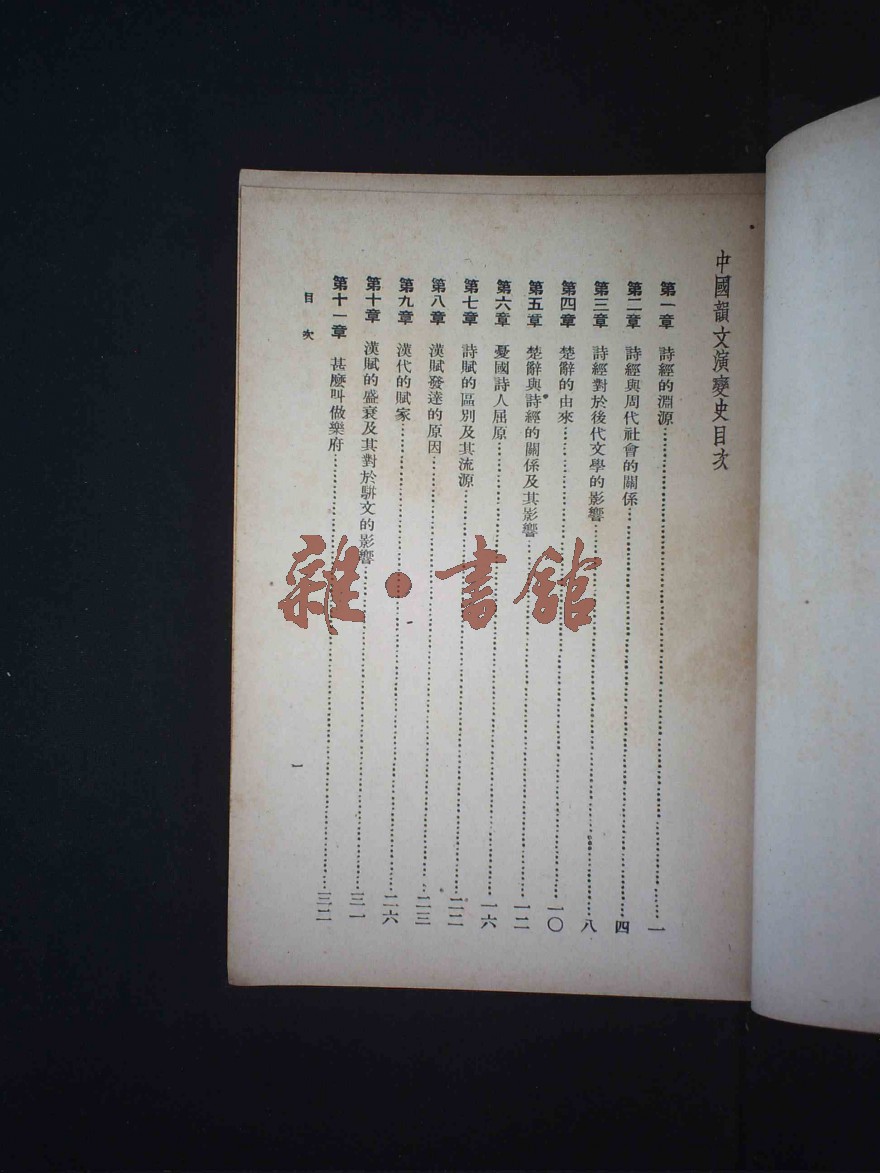 中國韻文演變史目次
第一章 詩經的淵源……一
第二章 詩經與周代社會的關係……四
第三章 詩經對於後代文學的影響……八
第四章 楚辭的由來……一〇
第五章 楚辭與詩經的關係及其影響……一二
第六章 憂國詩人屈原……一六
第七章 詩賦的區別及其流源……二二
第八章 漢賦發達的原因……二三
第九章 漢代的賦家……二六
第十章 漢賦的盛衰及其對於駢文的影響……三一
第十一章 甚麼叫做樂府……三二
目次
一
雜·書館